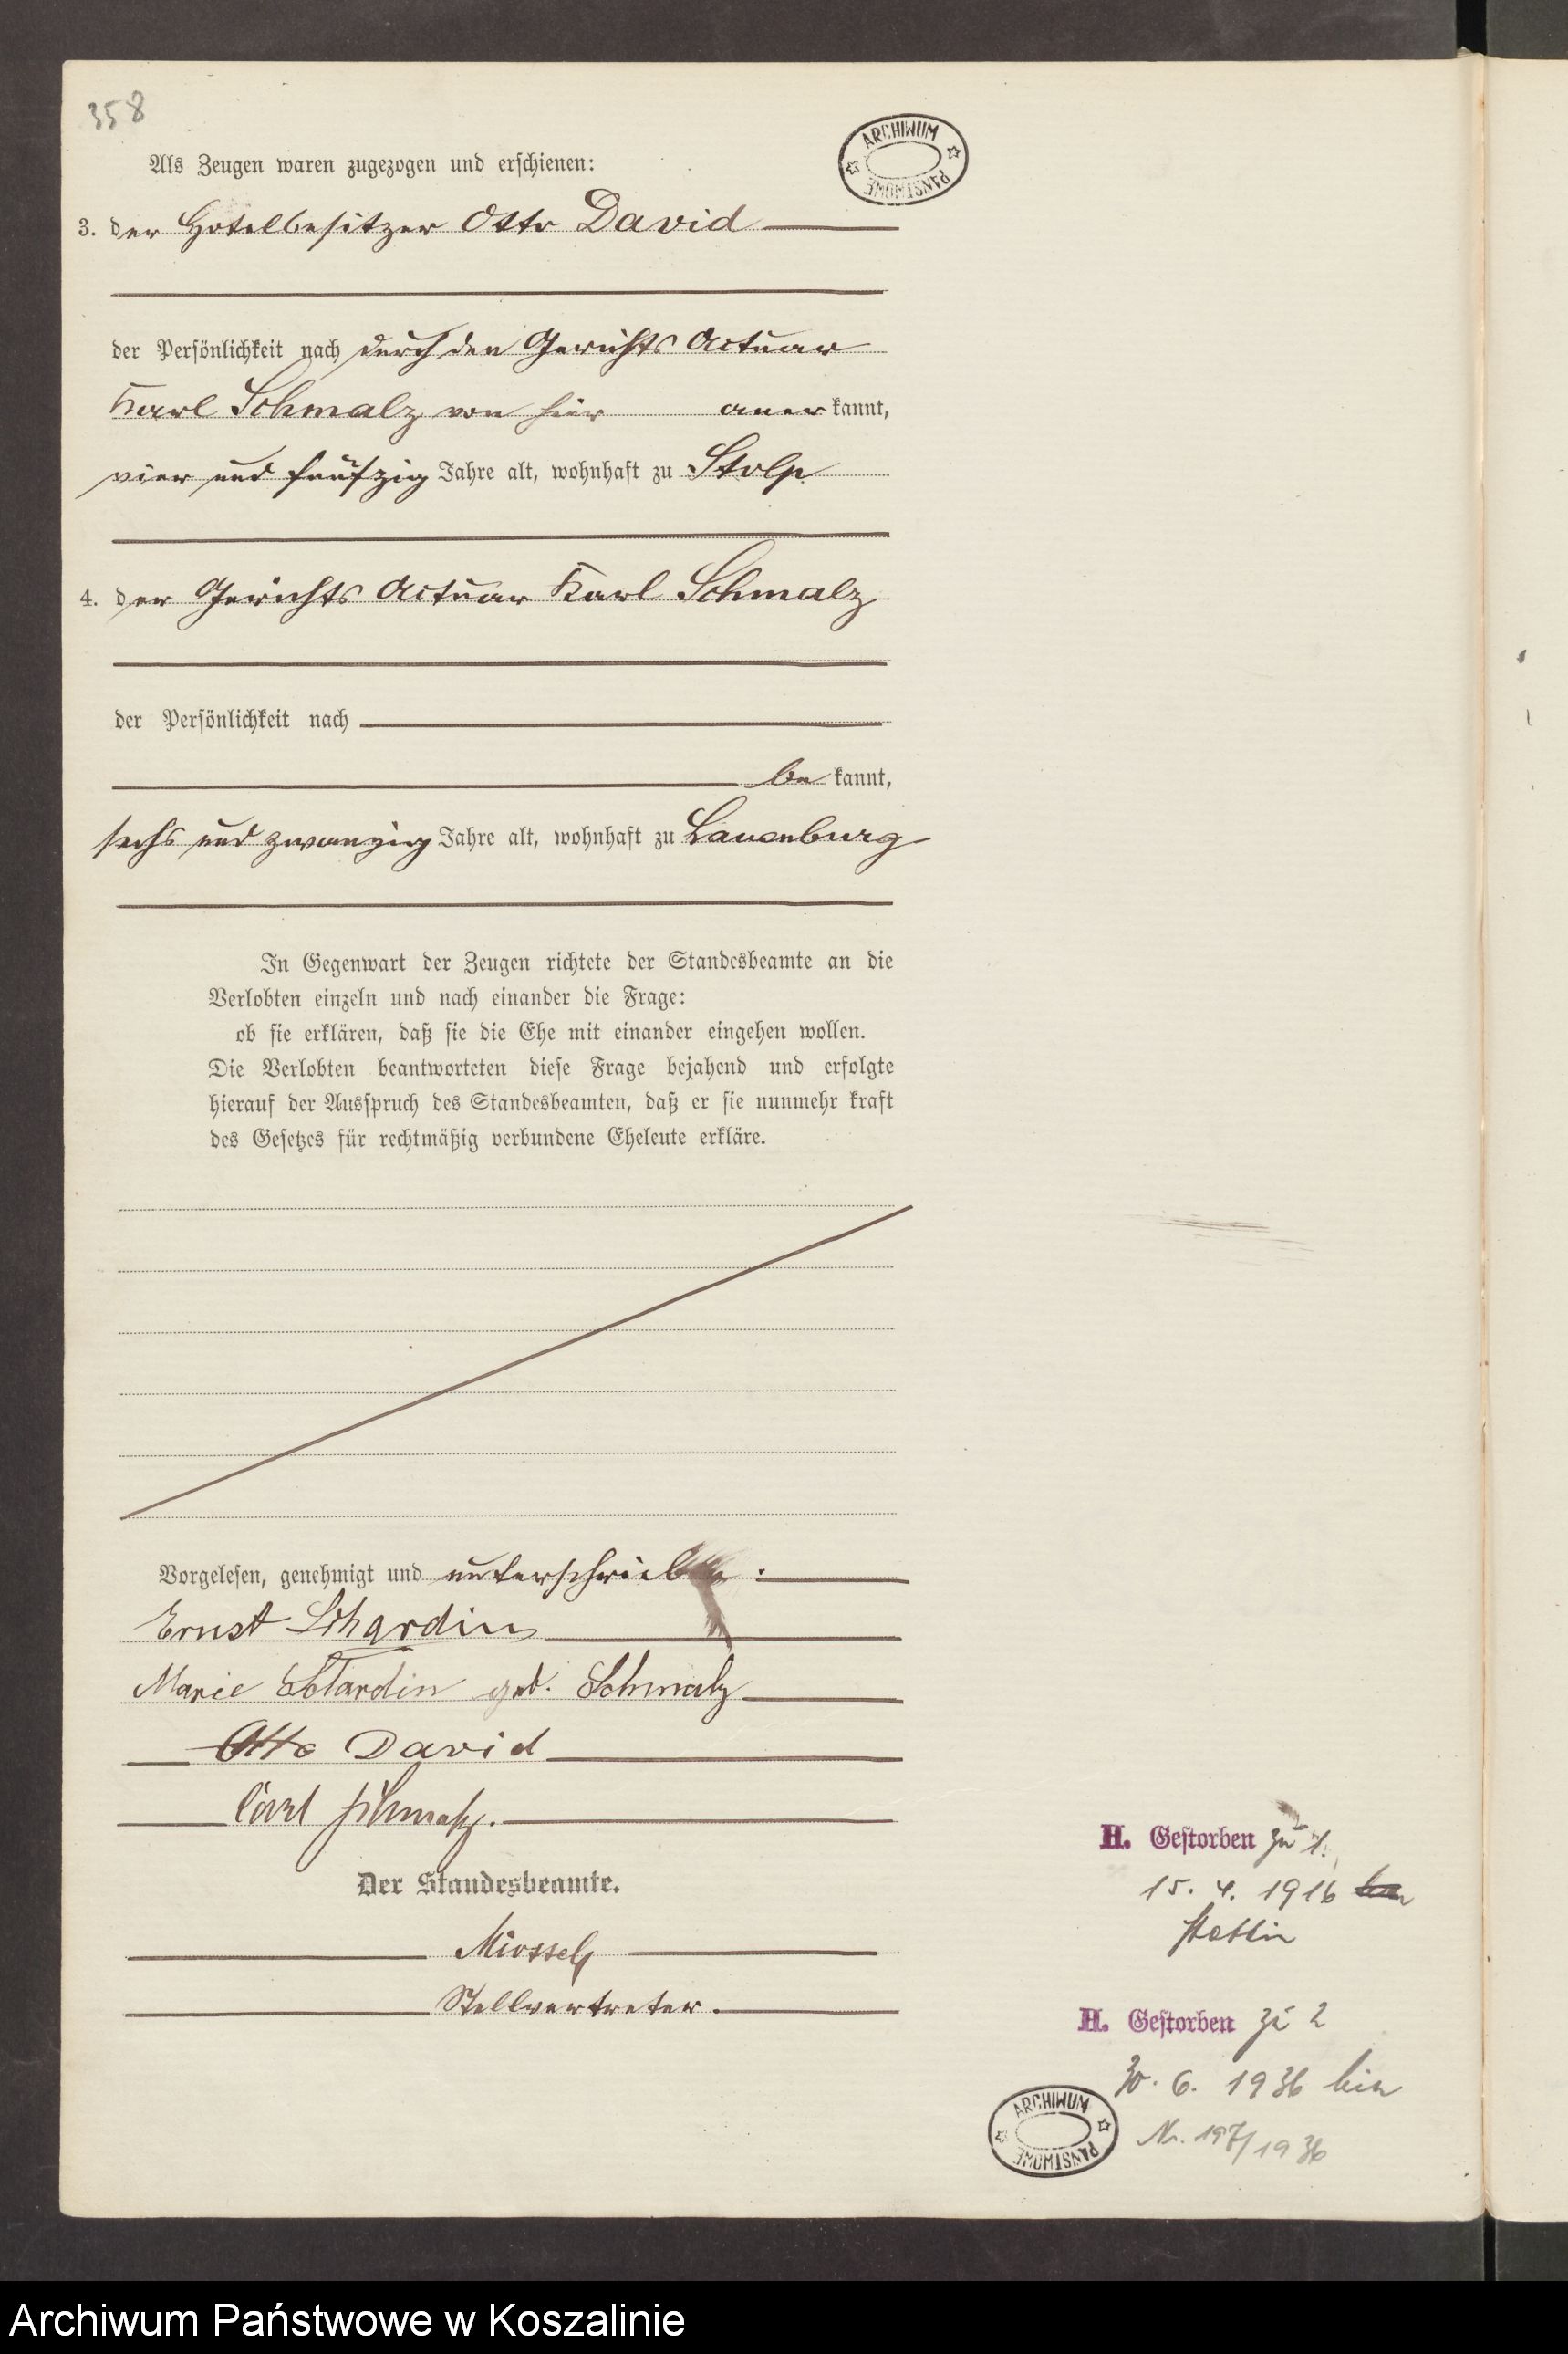 358
ARCHIWUM PAŃSTWOWE
Als Zeugen waren zugezogen und erschienen:
3. der Hotelbesitzer Otto David
der Persönlichkeit nach durch den Gerichts Actuar
Karl Schmalz von hier anerkannt,
vier und fünfzig Jahre alt, wohnhaft zu Stolp
4. der Gerichts Actuar Karl Schmalz
der Persönlichkeit nach
bekannt,
sechs und zwanzig Jahre alt, wohnhaft zu Lauenburg
In Gegenwart der Zeugen richtete der Standesbeamte an die
Verlobten einzeln und nach einander die Frage:
ob sie erklären, daß sie die Ehe mit einander eingehen wollen.
Die Verlobten beantworteten diese Frage bejahend und erfolgte
hierauf der Ausspruch des Standesbeamten, daß er sie nunmehr kraft
des Gesetzes für rechtmäßig verbundene Eheleute erkläre.
Vorgelesen, genehmigt und unterschrieben:
Ernst Schardin
Marie Schardin geb. Schmalz
Otto David
Carl Schmalz.
Der Standesbeamte.
Stellvertreter.
H. Gestorben zu 1.
15. 4. 1916
Stettin
H. Gestorben zu 2
30. 6. 1936 hier
Nr. 197/1936
ARCHIWUM PAŃSTWOWE
Archiwum Państwowe w Koszalinie